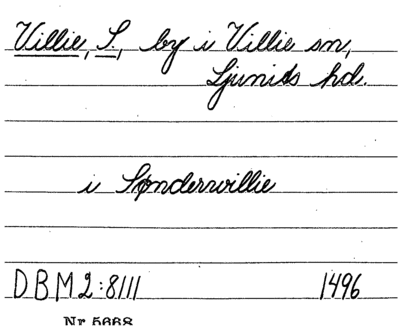 Villie, S., by i Villie sn,
Ljunits hd.
i Sønderwillie
DBM2:8111 1496
Nr 5668